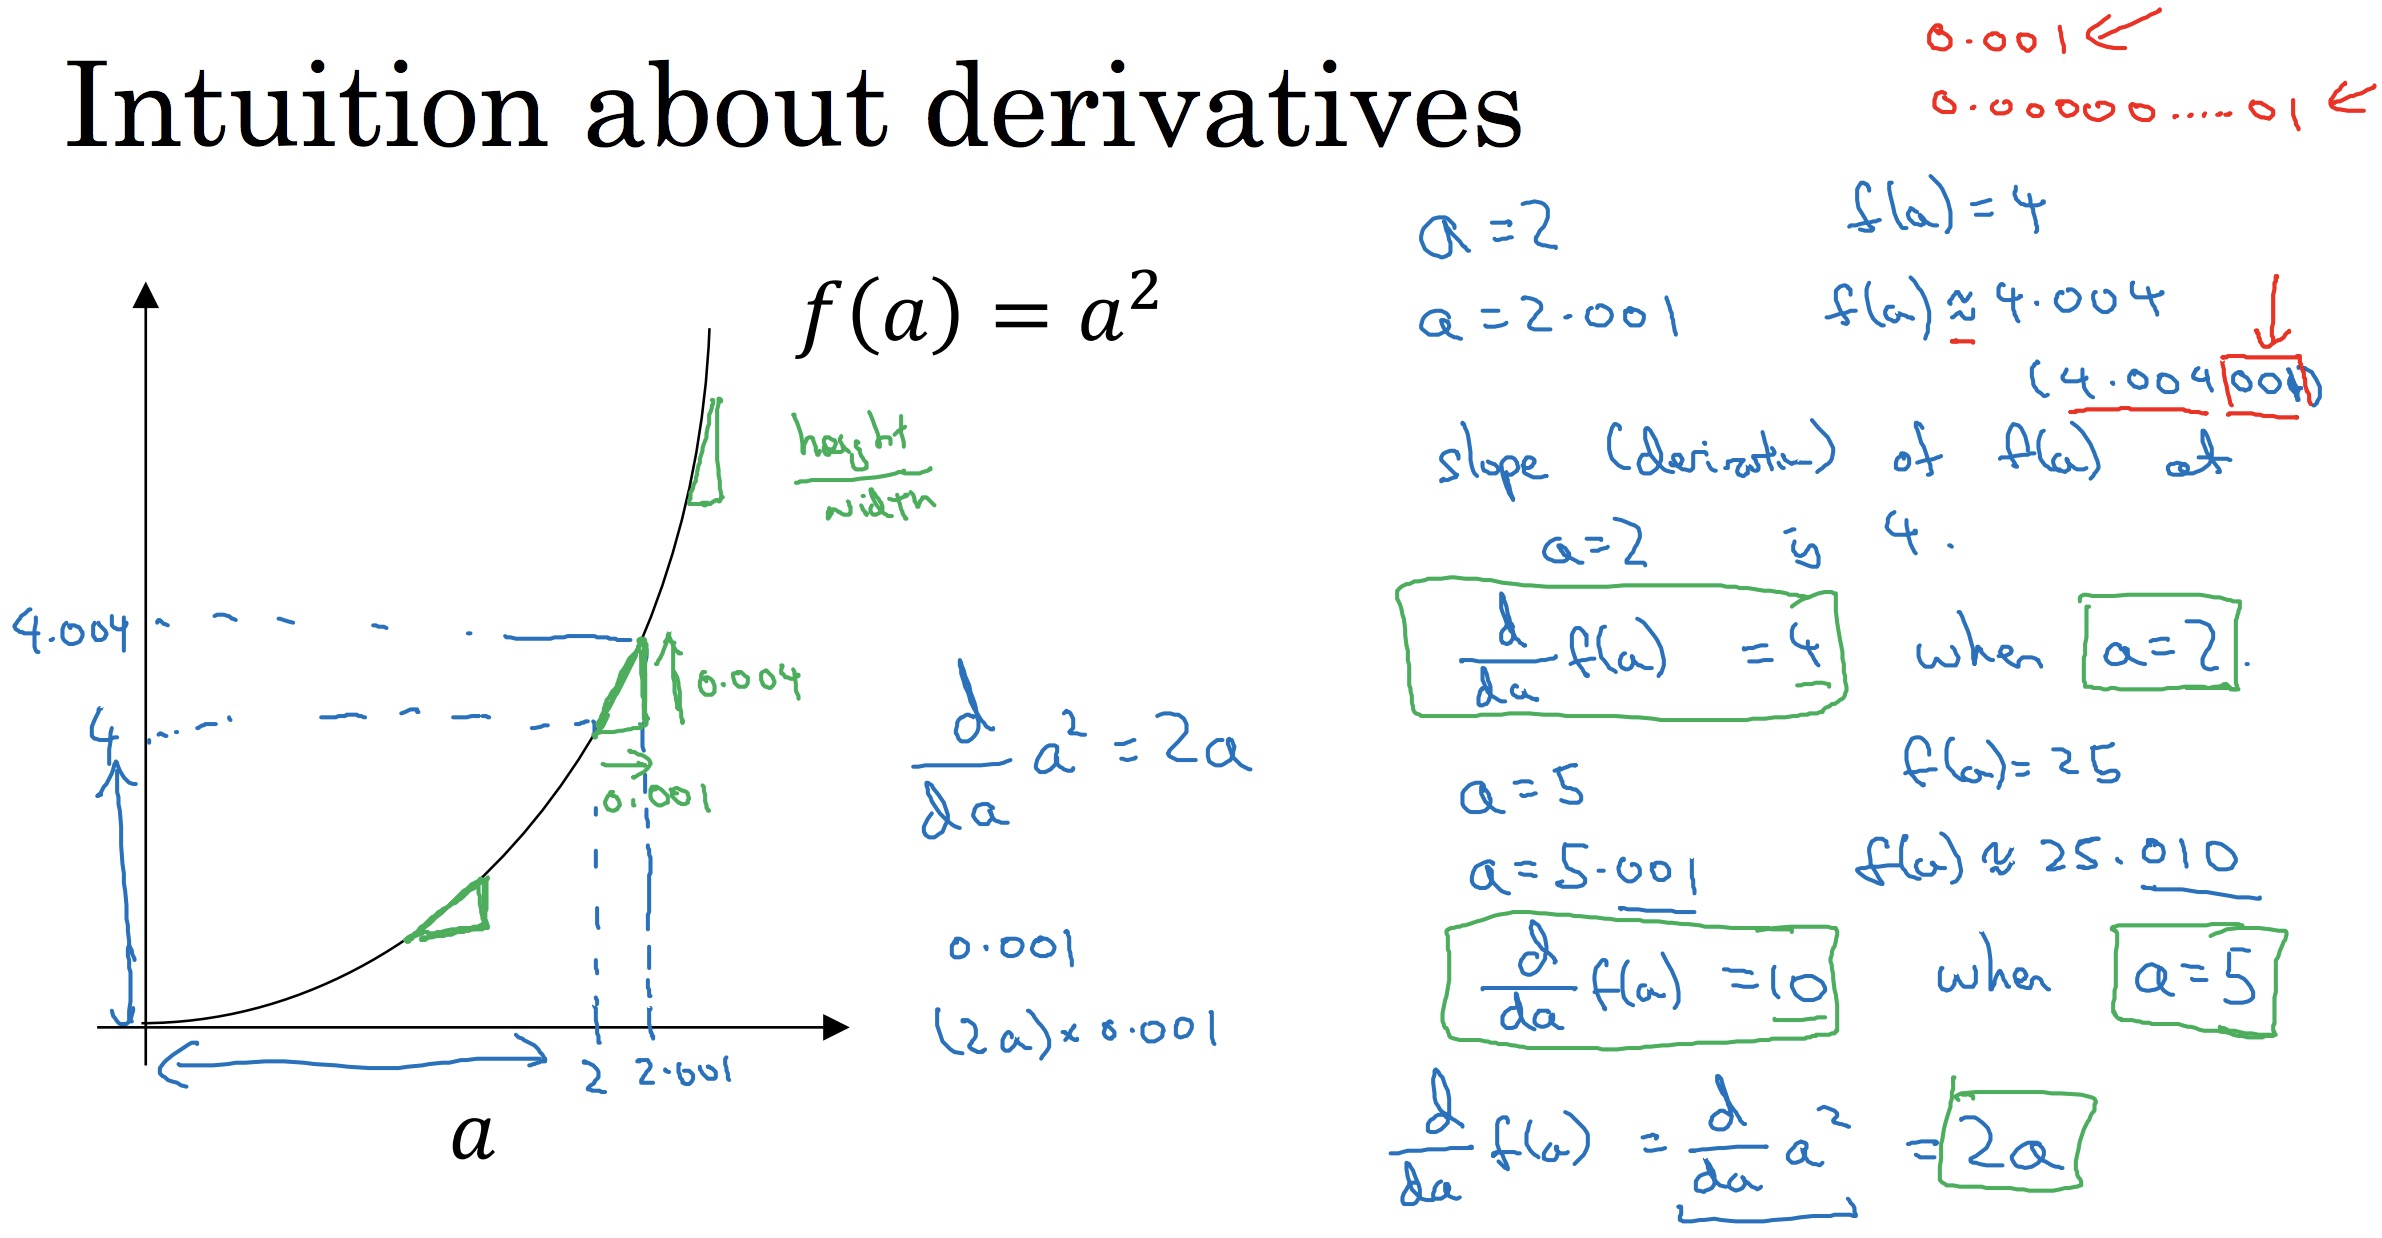 Intuition about derivatives
0.001
0.00000.....01
f(a) = a²
height
width
4.004
4
0.004
0.001
2 2.001
a
d/da a² = 2a
0.001
(2a) × 0.001
a = 2 f(a) = 4
a = 2.001 f(a) ≈ 4.004
(4.004001)
slope (derivative) of f(a) at
a=2 is 4.
d/da f(a) = 4 when a=2.
a = 5 f(a) = 25
a = 5.001 f(a) ≈ 25.010
d/da f(a) = 10 when a=5
d/da f(a) = d/da a² = 2a